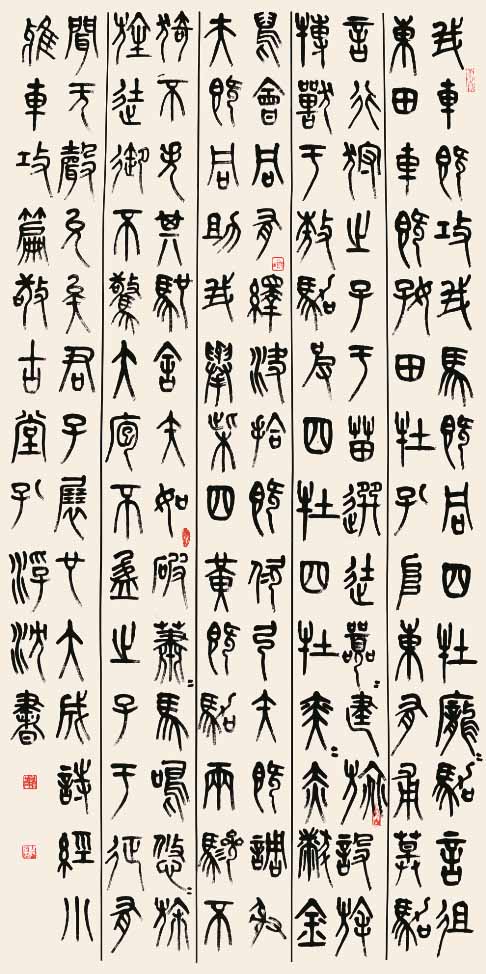 我車既攻我馬既同四牡龐=駕言徂
東田車既好田牡孔阜東有甫草駕
言行狩之子于苗選徒囂=建旐設旄
搏獸于敖駕彼四牡四牡奕=赤芾金
舄會同有繹決拾既佽弓矢既調射
夫既同助我舉柴四黃既駕兩驂不
猗不失其馳舍矢如破蕭=馬鳴悠=旆
旌徒御不驚大庖不盈之子于征有
聞无聲允矣君子展也大成詩經小
雅車攻篇敬古堂孔浮沈書